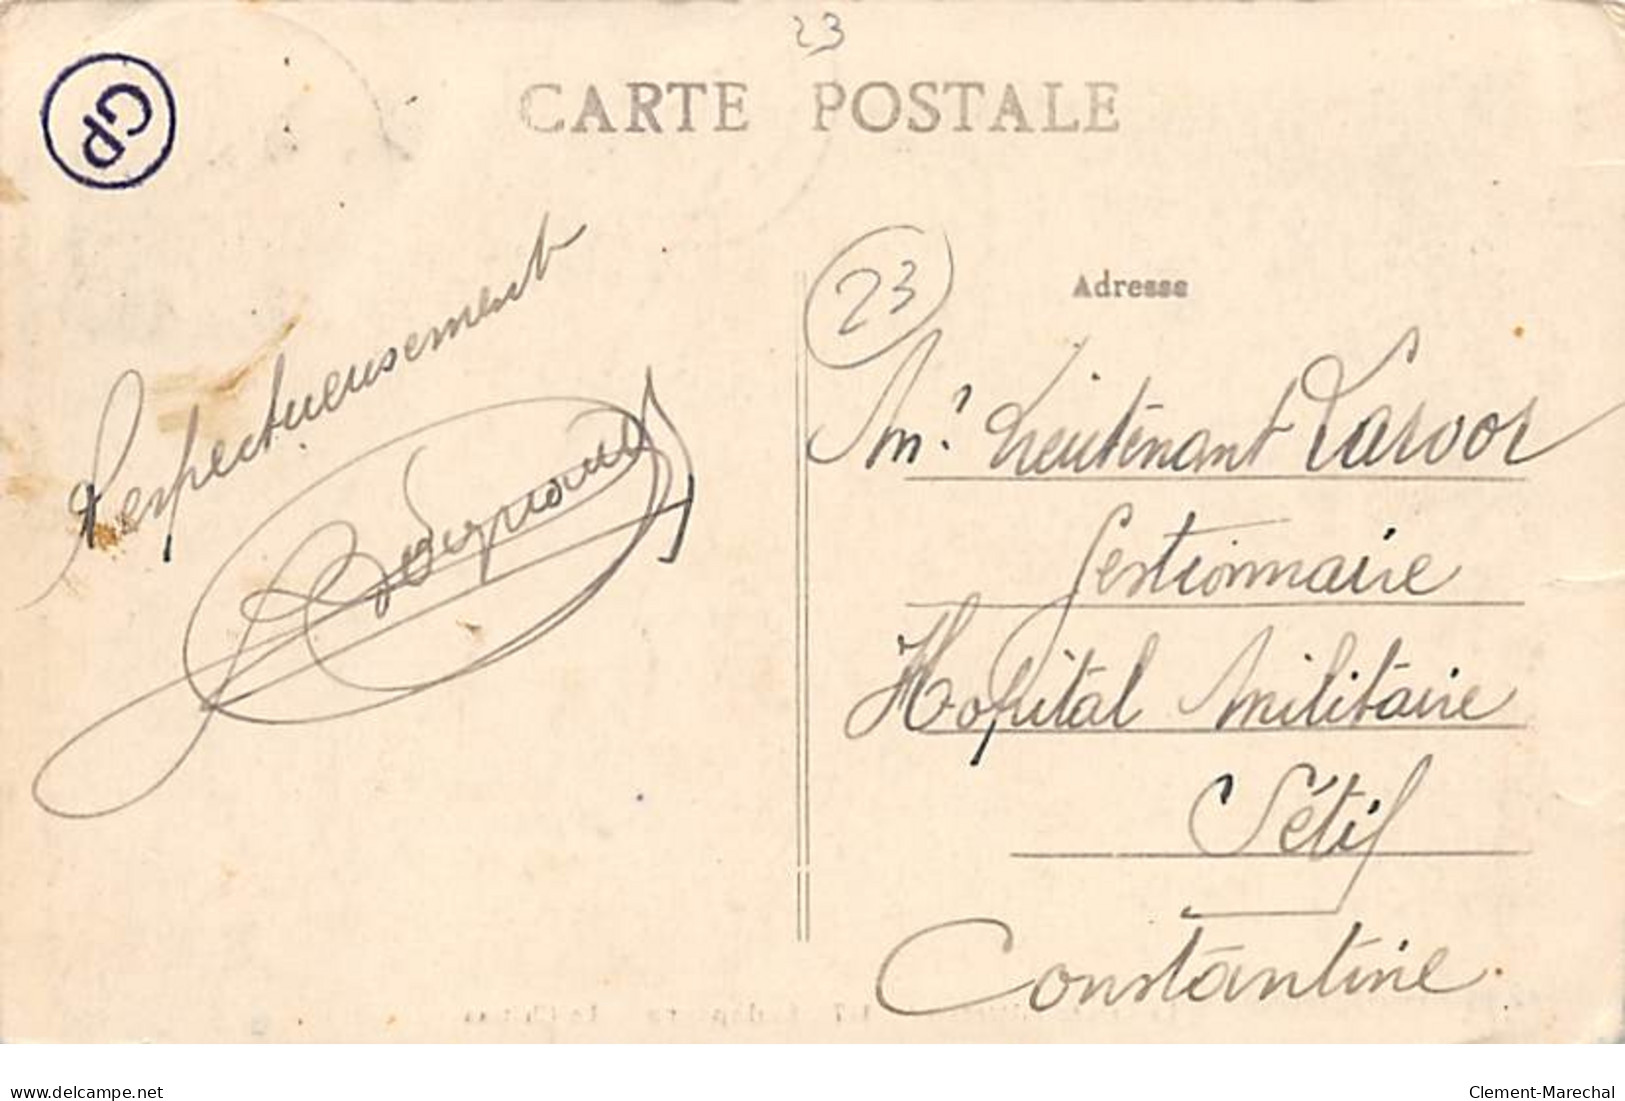 23
GP
CARTE POSTALE
Respectueusement
23
Adresse
Mr. Lieutenant Larvor
Gestionnaire
Hopital Militaire
Sétif
Constantine.
delcampe.net
Clement-Marechal